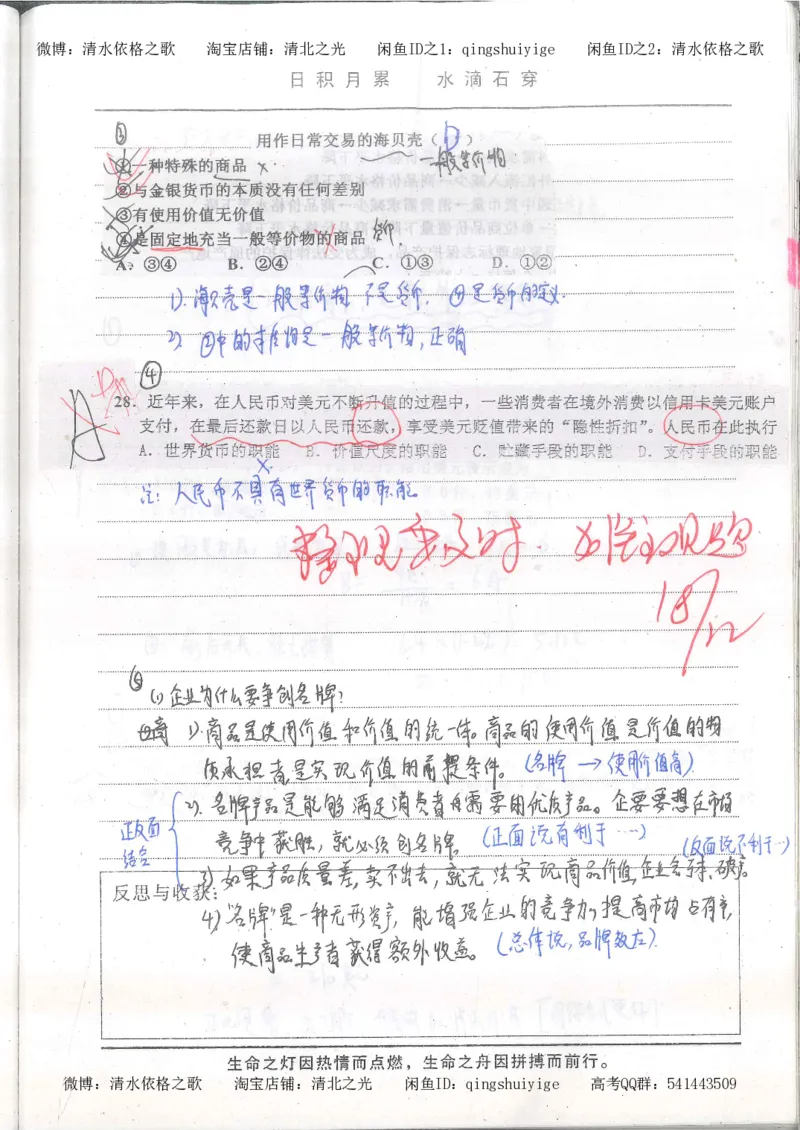 微博：清水依格之歌 淘宝店铺：清北之光 闲鱼ID之1：qingshuiyige 闲鱼ID之2：清水依格之歌
日积月累 水滴石穿
③
用作日常交易的海贝壳（ D ）
一般等价物
①一种特殊的商品 ×
②与金银货币的本质没有任何差别
③有使用价值无价值
④是固定地充当一般等价物的商品 货币.
A. ③④ B. ②④ C. ①③ D. ①②
1). 海贝壳是一般等价物 不是货币. ④是货币的定义.
2). ②中的 是一般等价物, 正确
④
28. 近年来，在人民币对美元不断升值的过程中，一些消费者在境外消费以信用卡美元账户
支付，在最后还款日以人民币还款，享受美元贬值带来的“隐性折扣”。人民币在此执行
A. 世界货币的职能 B. 价值尺度的职能 C. 贮藏手段的职能 D. 支付手段的职能
注: 人民币不具有世界货币的职能.
整理要及时. 加强主观题
18/12
⑤
(1) 企业为什么要争创名牌?
1). 商品是使用价值和价值的统一体。商品的使用价值是价值的物
质承担者是实现价值的前提条件。(名牌 → 使用价值高)
2). 名牌产品是能够满足消费者需要的优质产品。企要要想在市场
竞争中获胜, 就必须创名牌. (正面说有利于…) (反面说不利于…)
正反面
结合
3) 如果产品质量差, 卖不出去, 就无法实现商品价值, 企业会 破产.
反思与收获：
4) "名牌"是一种无形资产, 能增强企业的竞争力, 提高市场占有率,
使商品生产者获得额外收益。(总体说, 品牌效应).
生命之灯因热情而点燃，生命之舟因拼搏而前行。
微博：清水依格之歌 淘宝店铺：清北之光 闲鱼ID：qingshuiyige 高考QQ群：541443509